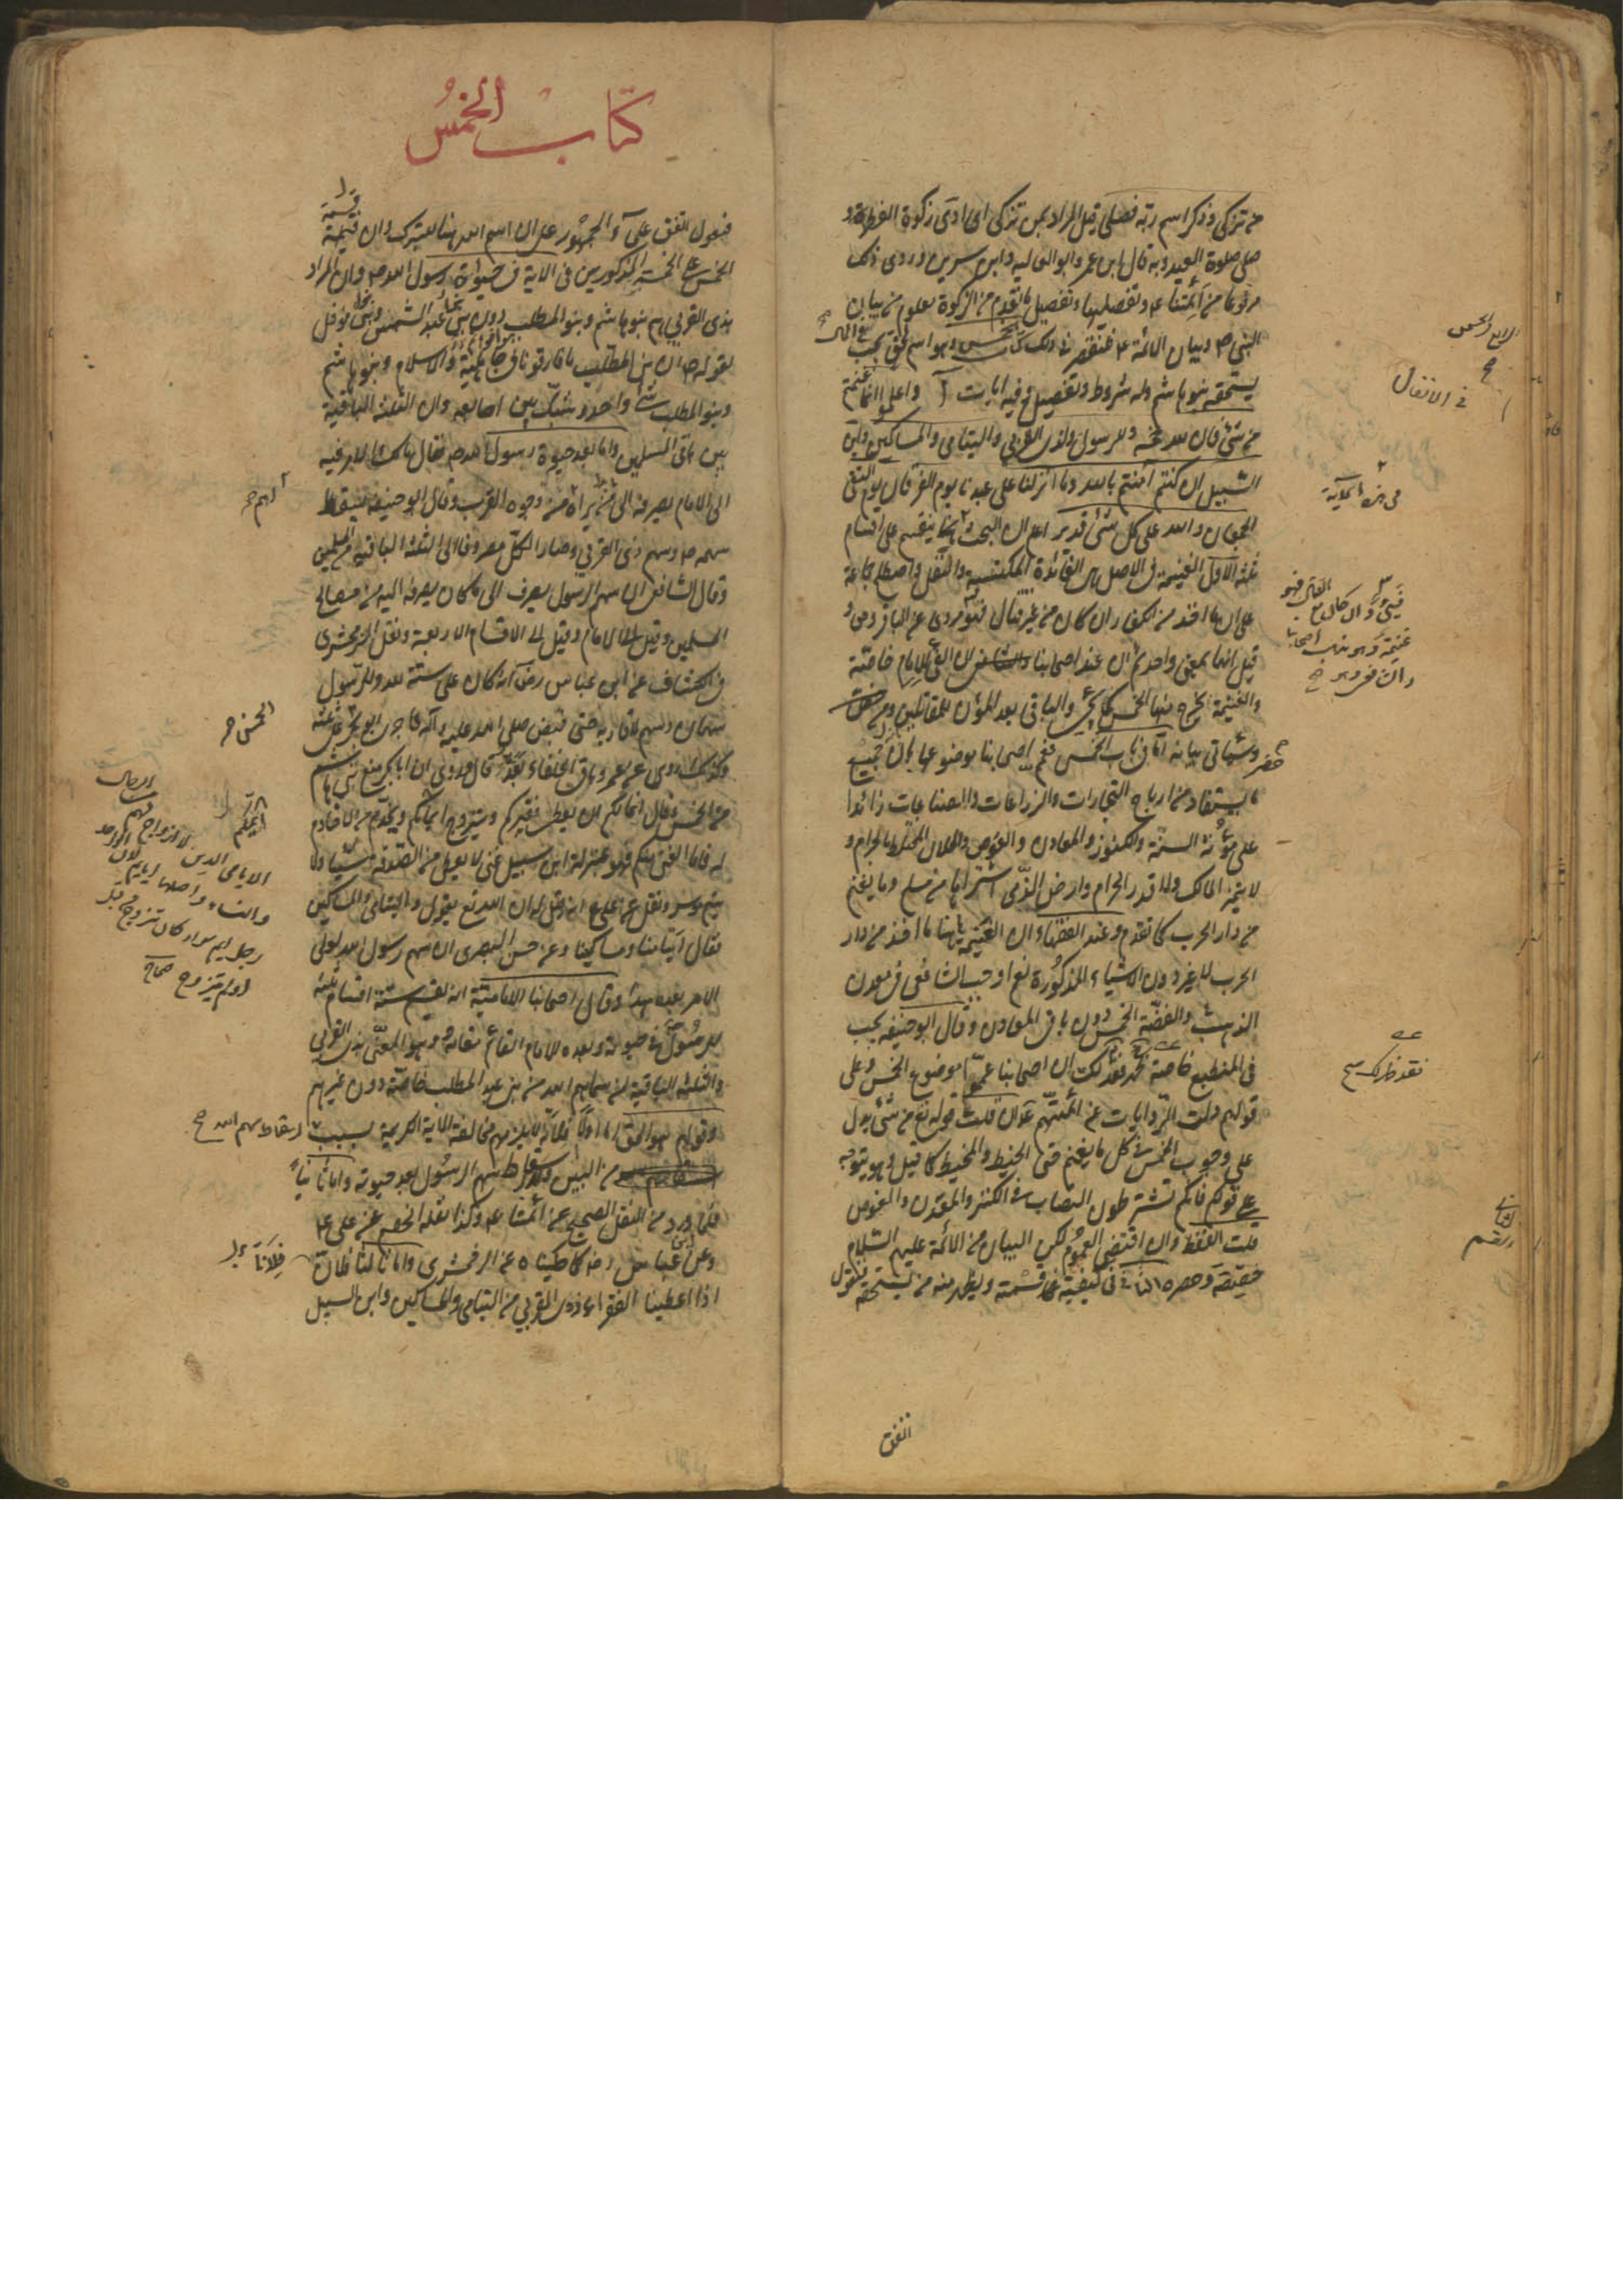 من تزكى وذكر اسم ربه فصلى قيل المراد بمن تزكى اى ادى زكوة الفطرة و
صلى صلوة العيد وبه قال ابن عمر وابو العاليه وابن سيرين وروى ذلك
مرفوعا من ائمتنا ع وتفصيلها وتفصيل ما تقدم من الزكوة معلوم من بيان
النبى ص وبيان الائمة ع فى ذلك كتاب الخمس وهو اسم لحق يجب
يستحقه بنو هاشم وله شروط وتفصيل وفيه ايات آ واعلموا انما غنمتم
من شئ فان لله خمسه وللرسول ولذى القربى واليتامى والمساكين وابن
السبيل ان كنتم آمنتم بالله وما انزلنا على عبدنا يوم الفرقان يوم التقى
الجمعان والله على كل شئ قدير اعلم ان البحث هنا ينقسم على اقسام
ثلثه الاول الغنيمة فى الاصل هى الفائدة المكتسبة والنفل واصطلح جماعة
على ان ما اخذ من الكفار ان كان من غير قتال فهو مروى عن الباقر وص و
قيل انهما بمعنى واحد ثم ان عند اصحابنا ان الفئ للامام خاصة
والغنيمة يخرج منها الخمس والباقى بعد المؤن للمقاتلين ومن حضر
وسياتى بيانه اما فى باب الخمس فعمم اصحابنا موضوعها بان جميع
ما يستفاد من ارباح التجارات والزراعات والصناعات زائدا
على مؤنة السنة والكنوز والمعادن والغوص والحلال المختلط بالحرام و
لا يتميز المالك ولا قدر الحرام وارض الذمى اشتراها من مسلم وما يغنم
من دار الحرب كما تقدم وعند الفقهاء ان الغنيمة هنا ما اخذ من دار
الحرب لا غير دون الاشياء المذكورة نعم اوجب الشافعى فى معدن
الذهب والفضة الخمس دون باقى المعادن وقال ابو حنيفه يجب
فى المنطبع خاصة ان اصحابنا عمموا موضوع الخمس وعلى
قولهم دلت الروايات عن ائمتهم ع ان قلت قوله تع من شئ يدل
على وجوب الخمس فى كل ما يغنم حتى الخيط والمخيط كما قيل وهو يتوجه
على قولكم فانكم تشترطون النصاب فى الكنز والمعدن والغوص
قلت اللفظ وان اقتضى العموم لكن البيان من الائمة عليهم السلام
خصصه وحصره الثانى فى كيفية قسمته ويظهر منه من يستحقه فنقول
اتفق
فى الانفال
فى هذه الآية
غنيمة وهو مذهب اصحابنا
والشافعى
كتاب الخمس
فنقول اتفق علماء الجمهور على ان اسم الله هنا للتبرك وان قسمة
الخمس على الخمسة المذكورين فى الاية فى حيوة رسول الله ص وان المراد
بذى القربى هم بنو هاشم وبنو المطلب دون بنى عبد الشمس وبنى نوفل
لقوله ص ان بنى المطلب ما فارقونا فى جاهلية ولا اسلام وبنو هاشم
وبنو المطلب شئ واحد وشبك بين اصابعه وان الثلثة الباقية
بين باقى المسلمين واما بعد حيوة رسول الله ص فقال مالك الامر فيه
الى الامام يصرفه الى ما يراه من وجوه القرب وقال ابو حنيفه يسقط
سهمه ص وسهم ذى القربى وصار الكل مصروفا الى الثلثة الباقيه من المسلمين
وقال الشافعى ان سهم الرسول يصرف الى ما كان يصرفه اليه من مصالح
المسلمين وقيل الى الامام وقيل الى الاقسام الاربعة ونقل الزمخشرى
فى الكشاف عن ابن عباس رض انه كان على ستة لله وللرسول
سهمان وسهم لاقاربه حتى قبض صلى الله عليه وآله فاجرى ابو بكر على ثلثه
وكذلك روى عن عمر وباقى الخلفاء بعده قال وروى ان ابا بكر منع بنى هاشم
من الخمس وقال انما لكم ان يعطى فقيركم ويتزوج ايمكم ويخدم من لا خادم
له فاما الغنى منكم فهو بمنزلة ابن سبيل غنى لا يعطى من الصدقة شيئا ولا
يتيم موسر ونقل عن على ع انه قيل له ان الله تع يقول واليتامى والمساكين
فقال ايتامنا ومساكيننا وعن حسن البصرى ان سهم رسول الله لولى
الامر بعده هذا وقال اصحابنا الامامية انه يقسم ستة اقسام ثلثة
للرسول فى حيوته وبعده للامام القائم مقامه وهو المعنى بذى القربى
والثلثة الباقية لمن سماهم الله من بنى عبد المطلب خاصة دون غيرهم
وقولهم هو الحق اما اولا فلانه لا يلزمهم مخالفة الاية الكريمة بسبب
من البين ولا اسقاط سهم الرسول بعد حيوته واما ثانيا
فلما ورد من النقل الصحيح عن ائمتنا ع وكذا نقله الخصم عن على ع
وعن ابن عباس رض كما حكيناه عن الزمخشرى واما ثالثا فلانا
اذا اعطينا الفقراء ذوى القربى من اليتامى والمساكين وابن السبيل
الخمس
ايمكم
الايامى الذين لا ازواج لهم من الرجال
والنساء واصلها ايايم لان الواحد
رجل ايم سواء كان تزوج من قبل
او لم يتزوج صحاح
اسقاط سهم الله
فلانا